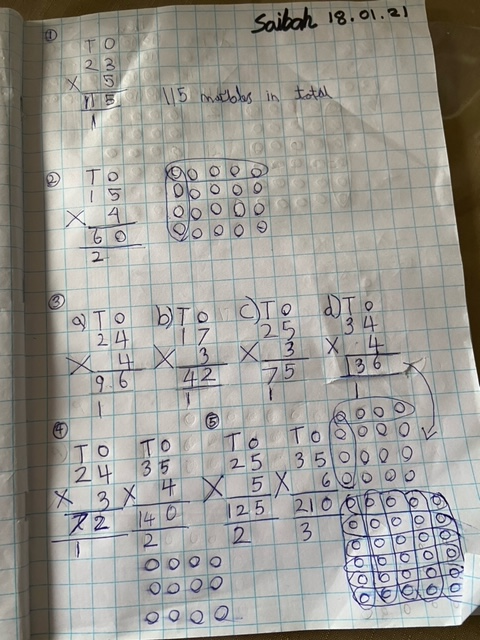 Saibah 18.01.21
①
T O
2 3
× 5
1 1 5 115 marbles in total
1
②
T O
1 5
× 4
6 0
2
③
a) T O b) T O c) T O d) T O
2 4 1 7 2 5 3 4
× 4 × 3 × 3 × 4
9 6 4 2 7 5 1 3 6
1 1 1 1
④ ⑤
T O T O T O T O
2 4 3 5 2 5 3 5
× 3 × 4 × 5 × 6
7 2 1 4 0 1 2 5 2 1 0
1 2 2 3